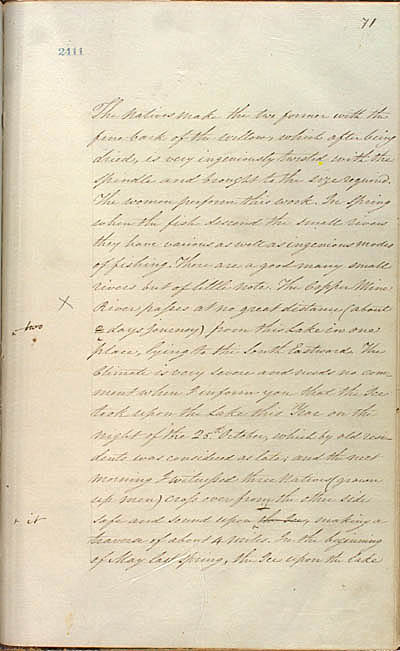 71
2411
The Natives make the two former with the
fine bark of the willow, which after being
dried, is very ingeniously twisted with the
spindle and brought to the size required.
The women perform this work. In Spring
when the fish descend the small rivers
they have various as well as ingenious modes
of fishing. There are a good many small
rivers but of little note. The Copper Mine
X
River passes at no great distance (about
two
2 days journey) from this Lake in one
place, lying to the South Eastward. The
Climate is very severe and needs no com-
ment when I inform you that the Ice
took upon the Lake this Year on the
night of the 25th October, which by old resi-
dents was considered as late; and the next
morning I witnessed three Natives (grown
up men) cross over from the other side
+ it
safe and sound upon the Ice, making a
traverse of about 4 miles. In the beginning
of May last spring, the Ice upon the Lake